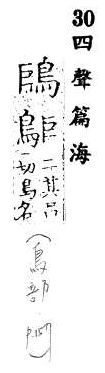 30四聲篇海
二其呂
切鳥名
(鳥部